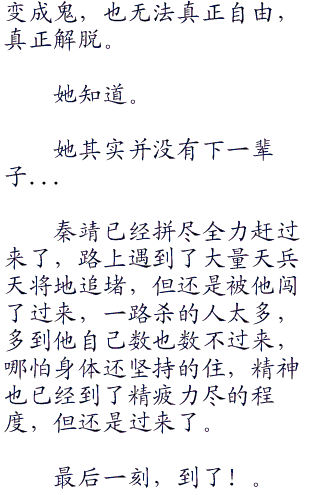 变成鬼，也无法真正自由，
真正解脱。
她知道。
她其实并没有下一辈
子...
秦靖已经拼尽全力赶过
来了，路上遇到了大量天兵
天将地追堵，但还是被他闯
了过来，一路杀的人太多，
多到他自己数也数不过来，
哪怕身体还坚持的住，精神
也已经到了精疲力尽的程
度，但还是过来了。
最后一刻，到了！。